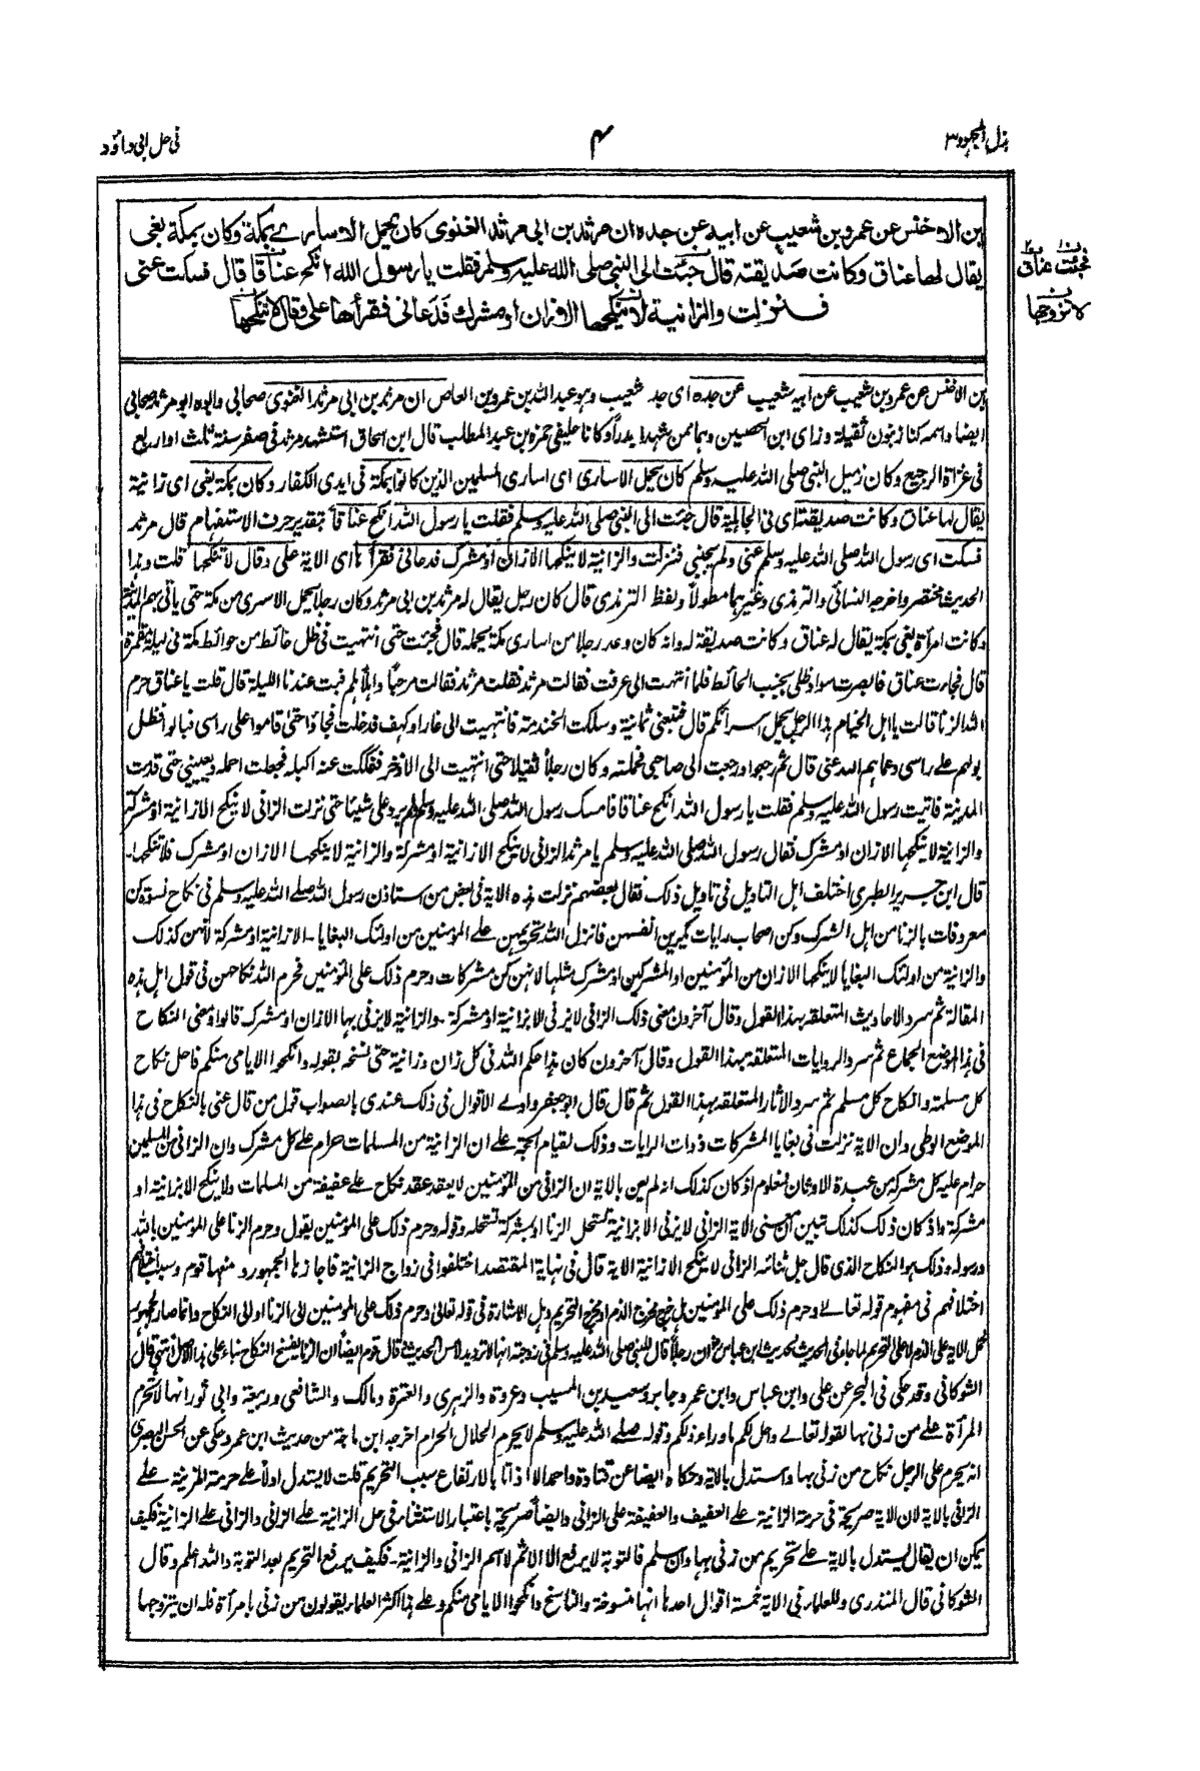 بذل المجهود ٣
٤
في حل ابي داؤد
بن الاخنس عن عمرو بن شعيب عن ابيه عن جده ان مرثد بن ابى مرثد الغنوى كان يحمل الاسارے بمكة وكان بمكة بغى
يقال لها عناق وكانت صديقته قال جئت الى النبى صلى الله عليه وسلم فقلت يا رسول الله انكح عناقا قال فسكت عنى
فنزلت والزانية لا ينكحها الا زان او مشرك فدعانى فقرأها على وقال لا تنكحها
فجئت عناق
لا تزوجها
بن الاخنس عن عمرو بن شعيب عن ابيه شعيب عن جده اى جد شعيب وهو عبد الله بن عمرو بن العاص ان مرثد بن ابى مرثد الغنوى صحابى وابوه ابو مرثد صحابى
ايضا واسمه كناز بنون ثقيلة وزاى ابن الحصين وهما ممن شهد ابدرا وكانا حليفى حمزة بن عبد المطلب قال ابن اسحاق استشهد مرثد فى صفر سنة ثلث او اربع
فى غزاة الرجيع وكان زميل النبى صلى الله عليه وسلم كان يحمل الاسارى اى اسارى المسلمين الذين كانوا بمكة فى ايدى الكفار وكان بمكة بغى اى زانية
يقال لها عناق وكانت صديقته اى فى الجاهلية قال جئت الى النبى صلى الله عليه وسلم فقلت يا رسول الله انكح عناقا بتقدير حرف الاستفهام قال مرثد
فسكت اى رسول الله صلى الله عليه وسلم عنى ولم يجبنى فنزلت والزانية لا ينكحها الا زان او مشرك فدعانى فقرأها اى الاية على وقال لا تنكحها قلت وهذا
الحديث مختصر واخرجه النسائى والترمذى وغيرهما مطولا ولفظ الترمذى قال كان رجل يقال له مرثد بن ابى مرثد وكان رجلا يحمل الاسرى من مكة حتى ياتى بهم المدينة
وكانت امرأة بغى بمكة يقال له عناق وكانت صديقة له وانه كان وعد رجلا من اسارى مكة يحمله قال فجئت حتى انتهيت فى ظل حائط من حوائط مكة فى ليلة مقمرة
قال فجاءت عناق فابصرت سواد ظلى بجنب الحائط فلما انتهت الى عرفت فقالت مرثد فقلت مرثد فقالت مرحبا واهلا هلم فبت عندنا الليلة قال قلت يا عناق حرم
الله الزنا قالت يا اهل الخيام هذا الرجل يحمل اسرائكم قال فتبعنى ثمانية وسلكت الخندمة فانتهيت الى غار او كهف فدخلت فجاؤا حتى قاموا على راسى فبالوا فظل
بولهم على راسى وعماهم الله عنى قال ثم رجعوا ورجعت الى صاحبى فحملته وكان رجلا ثقيلا حتى انتهيت الى الاذخر ففككت عنه اكبله فجعلت احمله ويعيينى حتى قدمت
المدينة فاتيت رسول الله صلى الله عليه وسلم فقلت يا رسول الله انكح عناقا فامسك رسول الله صلى الله عليه وسلم فلم يرد على شيئا حتى نزلت الزانى لا ينكح الا زانية او مشركة
والزانية لا ينكحها الا زان او مشرك فقال رسول الله صلى الله عليه وسلم يا مرثد الزانى لا ينكح الا زانية او مشركة والزانية لا ينكحها الا زان او مشرك فلا تنكحها۔
قال ابن جرير الطبرى اختلف اهل التاويل فى تاويل ذلك فقال بعضهم نزلت هذه الاية فى بعض من استاذن رسول الله صلى الله عليه وسلم فى نكاح نسوة كن
معروفات بالزنا من اهل الشرك وكن اصحاب رايات يكرين انفسهن فانزل الله تحريمهن على المؤمنين من اولئك البغايا۔ الا زانية او مشركة لانهن كذلك
والزانية من اولئك البغايا لا ينكحها الا زان من المؤمنين او المشركين او مشرك مثلها لانهن كن مشركات وحرم ذلك على المؤمنين فحرم الله نكاحهن فى قول اهل هذه
المقالة ثم سرد الاحاديث المتعلقة بهذا القول وقال آخرون معنى ذلك الزانى لا يزنى الا بزانية او مشركة۔ والزانية لا يزنى بها الا زان او مشرك قالوا ومعنى النكاح
فى هذا الموضع الجماع ثم سرد الروايات المتعلقة بهذا القول وقال آخرون كان هذا حكم الله فى كل زان وزانية حتى نسخه بقوله وانكحوا الايامى منكم فاحل نكاح
كل مسلمة وانكاح كل مسلم ثم سرد الآثار المتعلقة بهذا القول ثم قال قال ابو جعفر واولى الاقوال فى ذلك عندى بالصواب قول من قال عنى بالنكاح فى هذا
الموضع الوطى وان الاية نزلت فى بغايا المشركات ذوات الرايات وذلك لقيام الحجة على ان الزانية من المسلمات حرام على كل مشرك وان الزانى من المسلمين
حرام عليه كل مشركة من عبدة الاوثان فمعلوم اذ كان كذلك انه لم يعن بالاية ان الزانى من المؤمنين لا يعقد عقد نكاح على عفيفة من المسلمات ولا ينكح الا بزانية او
مشركة واذ كان ذلك كذلك تبين ان معنى الاية الزانى لا يزنى الا بزانية لا تستحل الزنا او بمشركة تستحله وقوله وحرم ذلك على المؤمنين يقول وحرم الزنا على المؤمنين بالله
ورسوله وذلك هو النكاح الذى قال جل ثنائه الزانى لا ينكح الا زانية الاية قال فى نهاية المقتصد اختلفوا فى زواج الزانية فاجازها الجمهور ومنعها قوم وسبب اختلافهم
اختلافهم فى مفهوم قوله تعالى وحرم ذلك على المؤمنين هل خرج مخرج الذم او مخرج التحريم وهل الاشارة فى قوله تعالى وحرم ذلك على المؤمنين الى الزنا او الى النكاح وانما صار الجمهور
لحمل الاية على الذم لا على التحريم لما جاء فى الحديث لحديث ابن عباس ان رجلا قال للنبى صلى الله عليه وسلم فى زوجته انها لا ترد يد لامس الحديث وقال قوم ايضا ان الزنا يفسخ النكاح بناء على هذا الاصل انتهى قال
الشوكانى وقد حكى فى البحر عن على وابن عباس وابن عمر وجابر وسعيد بن المسيب وعروة والزهرى والعترة ومالك والشافعى وربيعة وابى ثور انها لا تحرم
المرأة على من زنى بها لقوله تعالى واحل لكم ما وراء ذلكم وقوله صلى الله عليه وسلم لا يحرم الحلال الحرام اخرجه ابن ماجة من حديث ابن عمر وحكى عن الحسن البصرى
انه يحرم على الرجل نكاح من زنى بها واستدل بالاية وحكاه ايضا عن قتادة واحمد الا اذا تابا لارتفاع سبب التحريم قلت لا يستدل اولا على حرمة المزنية على
الزانى بالاية لان الاية صريحة فى حرمة الزانية على العفيف والعفيفة على الزانى وايضا صريحة باعتبار الاستثناء فى حل الزانية على الزانى والزانى على الزانية فكيف
يمكن ان يقال يستدل بالاية على تحريم من زنى بها وان سلم فالتوبة لا يرفع الا الاثم لا اسم الزانى والزانية۔ فكيف يرفع التحريم بعد التوبة والله اعلم وقال
الشوكانى قال المنذرى وللعلماء فى الاية خمسة اقوال احدها انها منسوخة والناسخ وانكحوا الايامى منكم وعلى هذا اكثر العلماء يقولون من زنى بامرأة فله ان يتزوجها